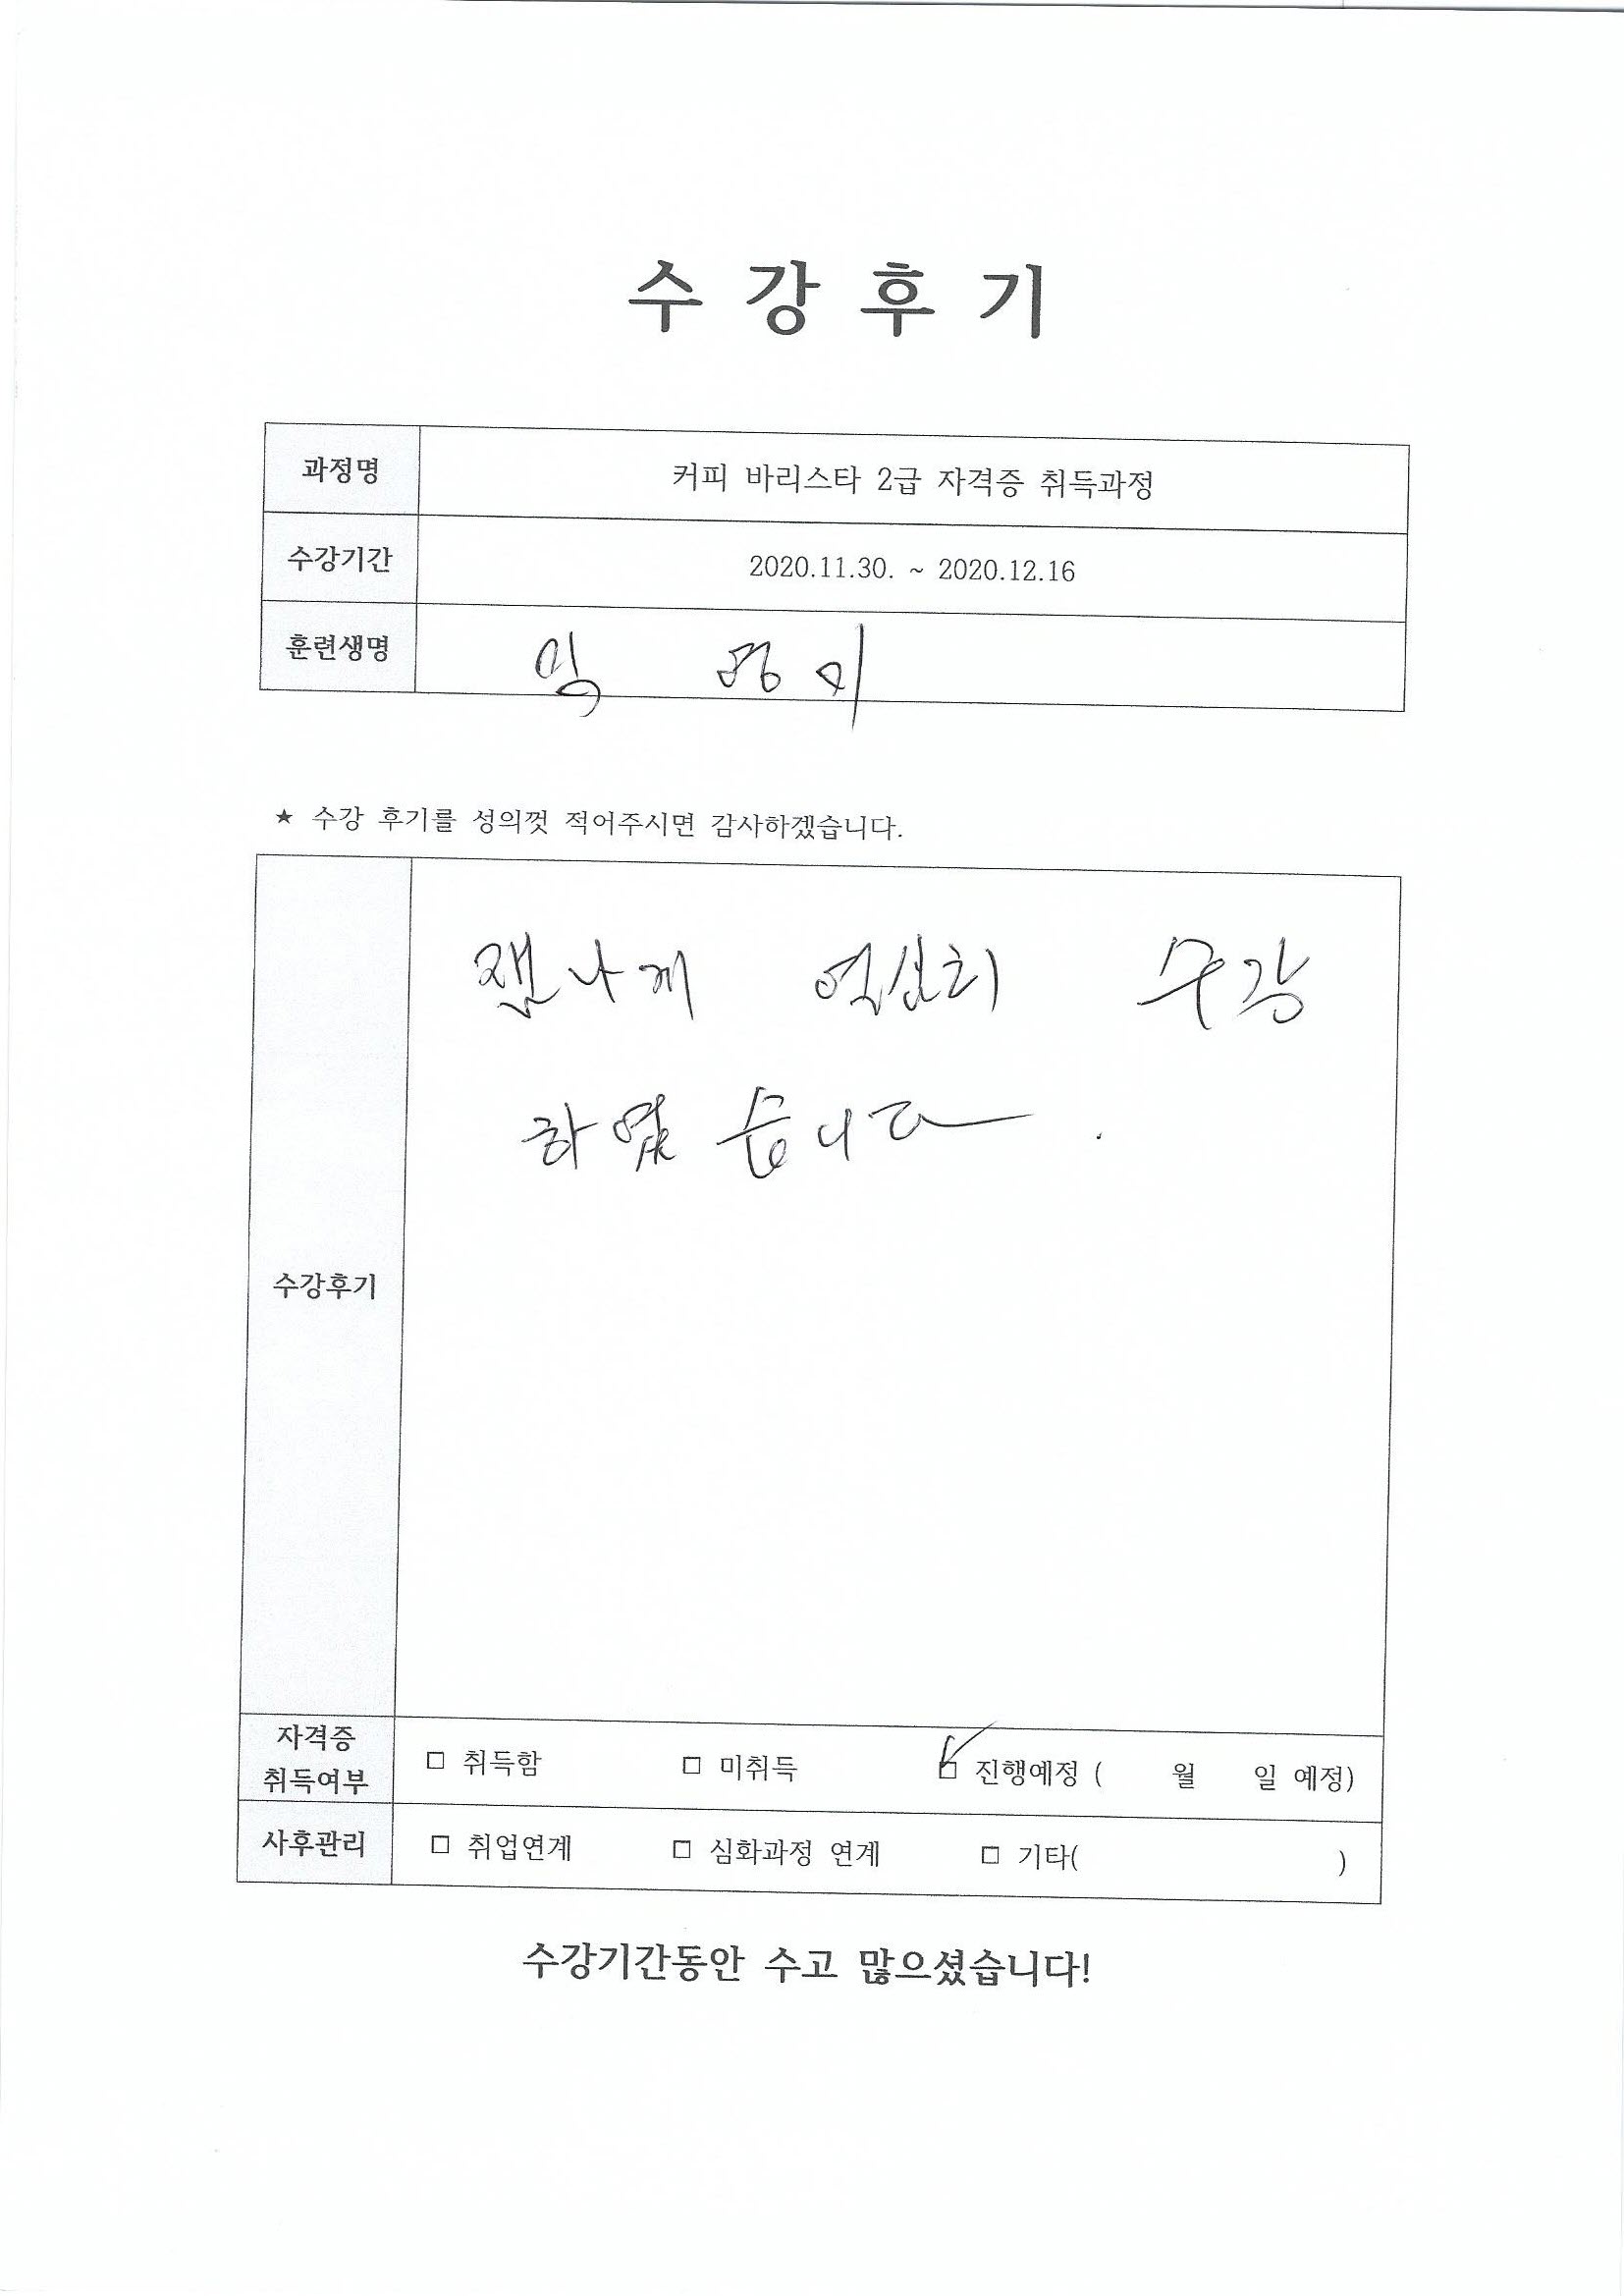 수 강 후 기
과정명 커피 바리스타 2급 자격증 취득과정
수강기간 2020.11.30. ~ 2020.12.16
훈련생명
★ 수강 후기를 성의껏 적어주시면 감사하겠습니다.
잼나게 열심히 수강
하였습니다.
수강후기
자격증
취득여부 □ 취득함 □ 미취득 □ 진행예정 ( 월 일 예정)
사후관리 □ 취업연계 □ 심화과정 연계 □ 기타( )
수강기간동안 수고 많으셨습니다!